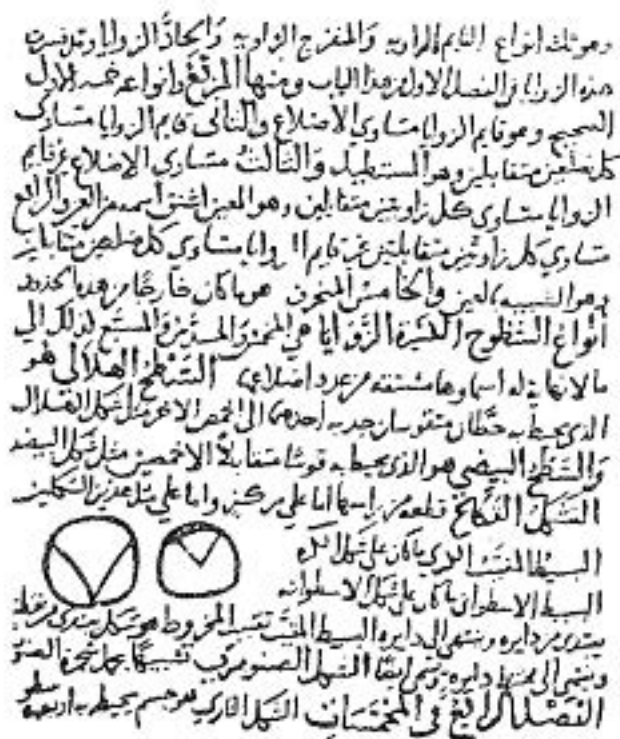 وهو ثلثة انواع القايم الزاويه والمنفرج الزاويه والحاد الزوايا وقد فسرت
هذه الزوايا في الفصل الاول من هذا الباب ومنها المربع وانواعه خمسه الاول
الصحيح وهو قايم الزوايا متساوي الاضلاع والثاني قايم الزوايا متساوى
كل ضلعين متقابلين وهو المستطيل والثالث متساوي الاضلاع غير قايم
الزوايا متساوى كل زاويتين متقابلين وهو المعين اشتق اسمه من العين والرابع
متساوي كل زاويتين متقابلتين غير قايم الزوايا متساوى كل ضلعين متقابلين
وهو الشبيه بالمعين والخامس المنحرف هو ما كان خارجًا من هذه الحدود
انواع السطوح الكثيرة الزوايا هي المخمس والمسدس والمسبع كذلك الى
ما لا نهاية له اسماوها مشتقه من عدد اضلاعها السطح الهلالى هو
الذى يحيط به خطان متقوسان حدبه احدهما الى اخمص الاخر مثل شكل الهلال
والسطح البيضي هو الذى يحيط به قوسا متقابلا الاخمصين مثل شكل البيضه
الشكل قطعه من راسها اما على مركز واما على مثل هذين الشكلين
البسيط الذي ما كان على شكل الكره
البسيط الاسطوانى ما كان على شكل الاسطوانه
يبتدى من دايره وينتهى الى دايره البسيط المخروط هو شكل يبتدى من نقطه
وينتهى الى محيط دايره ويسمى ايضا الشكل الصنوبرى تشبيهًا بحمل شجرة الصنوبر
الفصل الرابع في المجسمات الشكل النارى هو جسم يحيط به اربعه سطوح